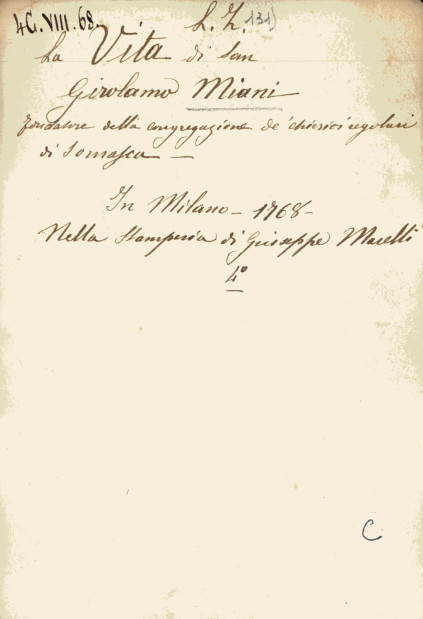 4C.VIII.68. L. Z. 131)
La Vita di San
Girolamo Miani
fondatore della congregazione de' chierici regolari
di Somasca —
In Milano - 1768 -
Nella Stamperia di Giuseppe Marelli
4°
C